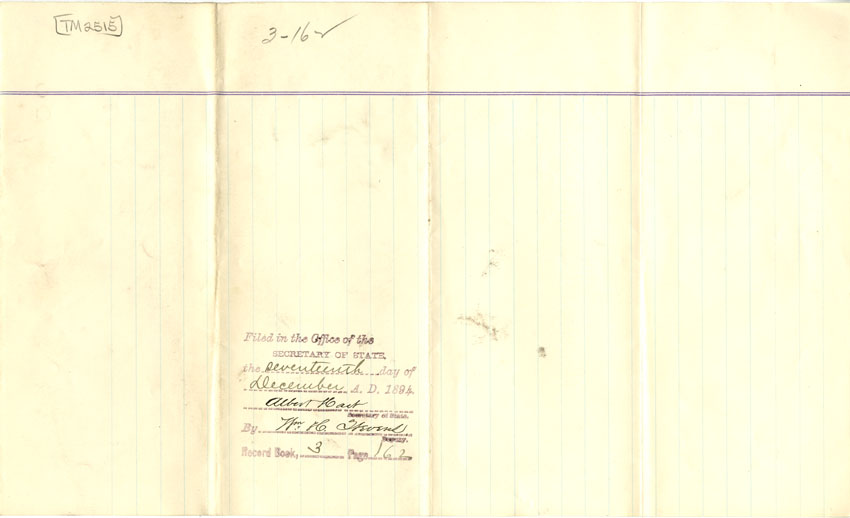 [TM2515]
3-162
Filed in the Office of the
SECRETARY OF STATE,
the seventeenth day of
December A. D. 1894.
Albert Hart
Secretary of State.
By Wm H.
Deputy.
Record Book, 3 Page 162